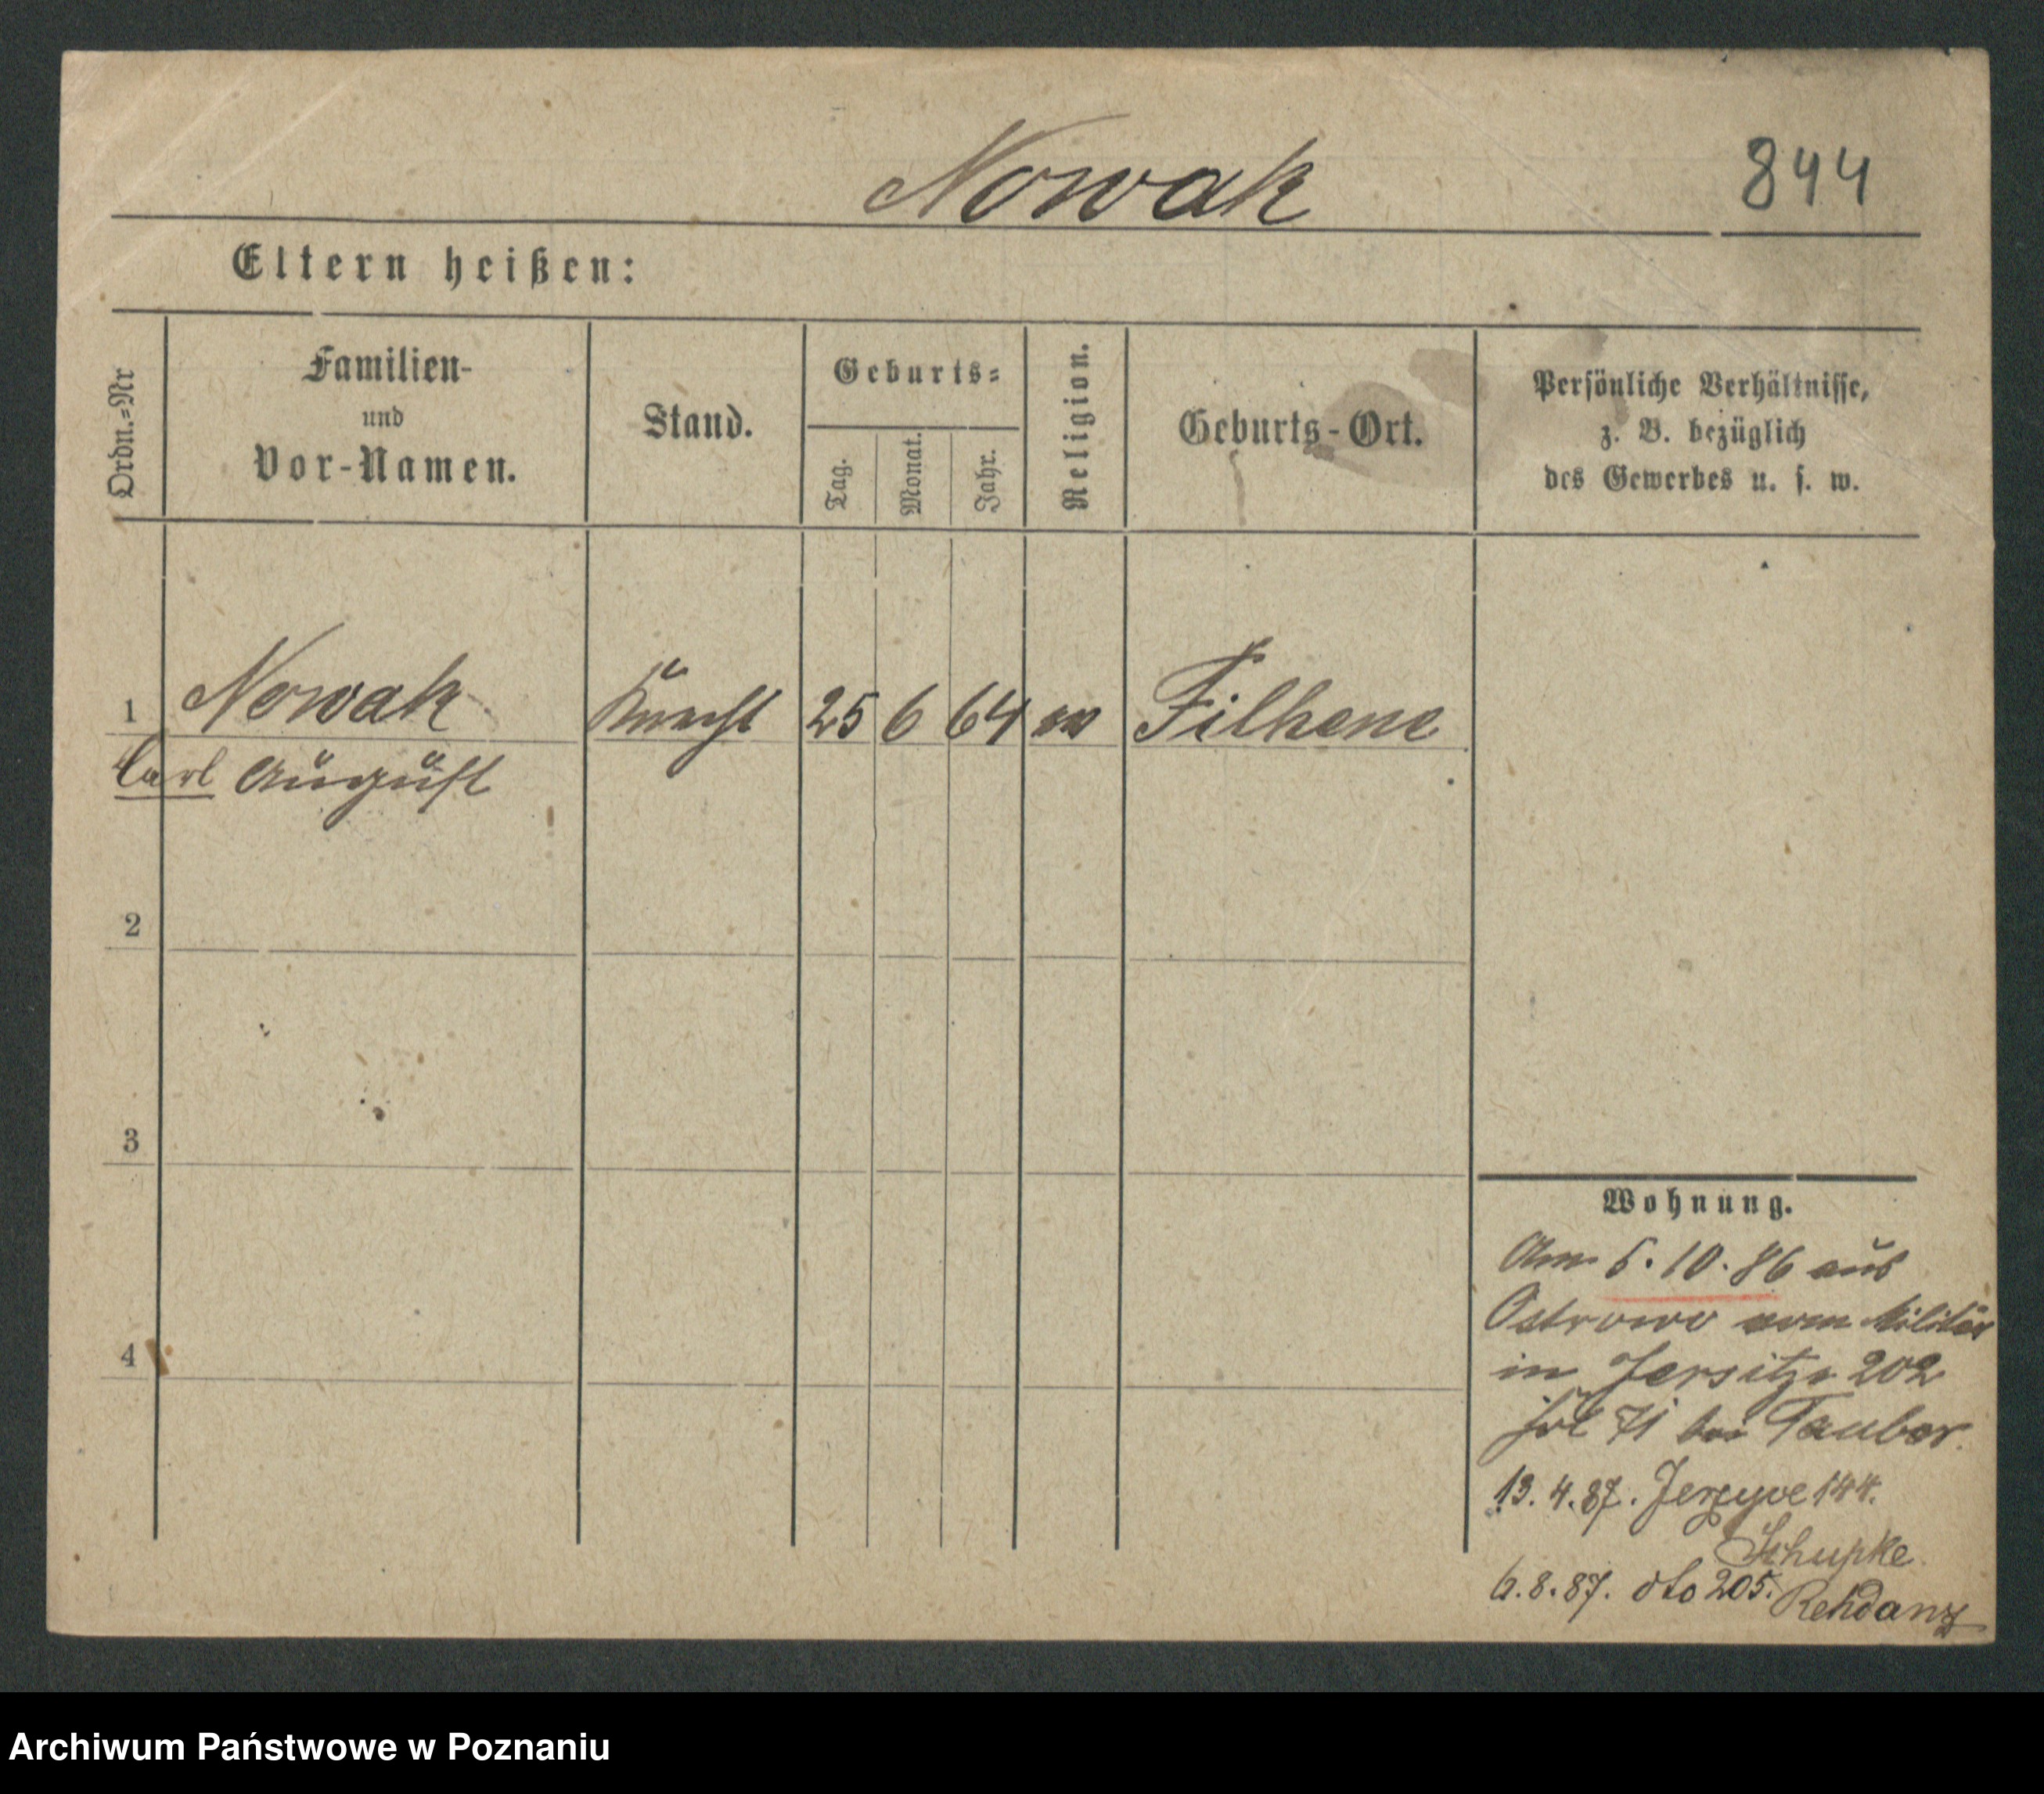 Nowak
844
Eltern heißen:
Ordn.-Nr
Familien-
und
Vor-Namen.
Stand.
Geburts-
Tag.
Monat.
Jahr.
Religion.
Geburts-Ort.
Persönliche Verhältnisse,
z. B. bezüglich
des Gewerbes u. s. w.
1 Nowak Knecht 25 6 64 Filhene
Carl August
2
3
4
Wohnung.
Am 5.10.86 aus
Ostrowo vom Militär
in Jersitz 202
71 bei Tauber.
13.4.87. Jerzyce 144.
Schupke
6.8.87. dto 205. Rehdanz
Archiwum Państwowe w Poznaniu